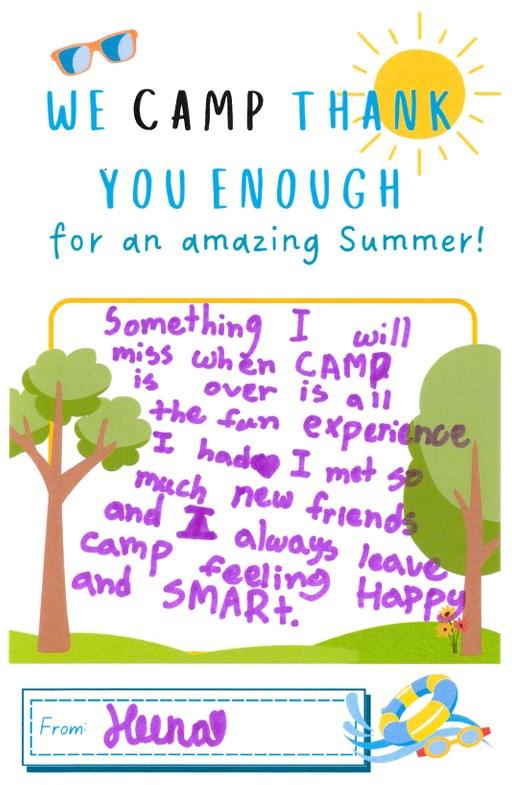 WE CAMP THANK
YOU ENOUGH
for an amazing Summer!
Something I will
miss when CAMP
is over is all
the fun experience
I had I met so
much new friends
and I always leave
camp feeling
and SMARt. Happy
From: